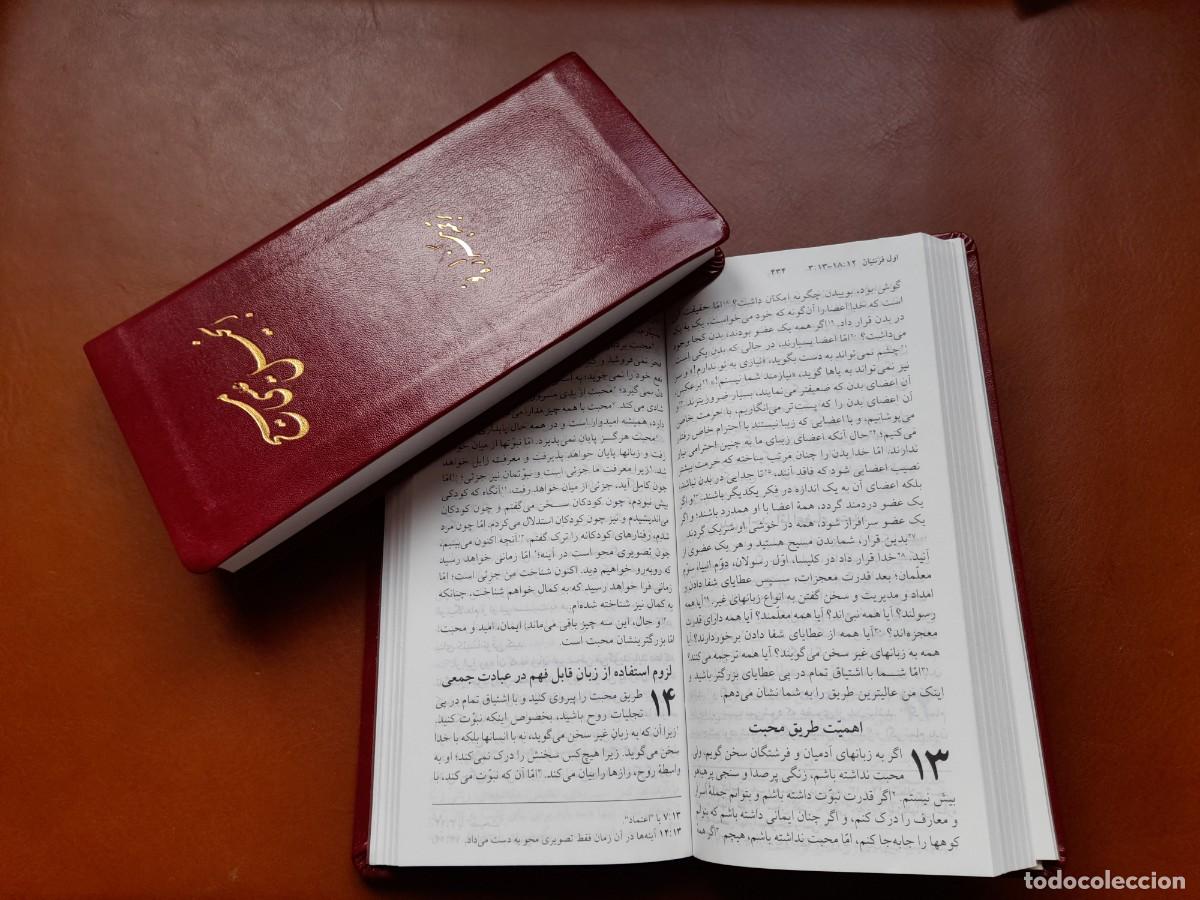 انجیل
اول قرنتیان ۱۲:‏۱۸-۱۳:‏۳
۴۳۴
گوش بود، بوییدن چگونه امکان داشت؟ ۱۸امّا حقیقت
است که خدا اعضا را آن‌گونه که خود می‌خواست، یک به یک
در بدن قرار داد. ۱۹اگر همه یک عضو بودند، بدن کجا وجود
می‌داشت؟ ۲۰امّا اعضا بسیارند، در حالی که بدن یکی است.
۲۱چشم نمی‌تواند به دست بگوید، «نیازی به تو ندارم!» و سر
نیز نمی‌تواند به پاها گوید، «نیازمند شما نیستم!» ۲۲برعکس،
آن اعضای بدن که ضعیفتر می‌نمایند، بسیار ضروریترند.
آن اعضای بدن را که پست‌تر می‌انگاریم، با حرمت خاص
می‌پوشانیم، و با اعضایی که زیبا نیستند با احترام خاص رفتار
می‌کنیم؛ ۲۴حال آنکه اعضای زیبای ما به چنین احترامی نیاز
ندارند. امّا خدا بدن را چنان مرتب ساخته که حرمت بیشتر
نصیب اعضایی شود که فاقد آنند، ۲۵تا جدایی در بدن نباشد،
بلکه اعضای آن به یک اندازه در فکر یکدیگر باشند. ۲۶و اگر
یک عضو دردمند گردد، همهٔ اعضا با او همدرد باشند؛ و اگر
یک عضو سرافراز شود، همه در خوشی او شریک گردند.
۲۷بدین قرار، شما بدن مسیح هستید و هر یک عضوی از
آنید. ۲۸خدا قرار داد در کلیسا، اوّل رسولان، دوّم انبیا، سوّم
معلّمان؛ بعد قدرت معجزات، سپس عطایای شفا دادن و
امداد و مدیریت و سخن گفتن به انواع زبانهای غیر. ۲۹آیا همه
رسولند؟ آیا همه نبی‌اند؟ آیا همه معلّمند؟ آیا همه دارای قدرت
معجزه‌اند؟ ۳۰آیا همه از عطایای شفا دادن برخوردارند؟ آیا
همه به زبانهای غیر سخن می‌گویند؟ آیا همه ترجمه می‌کنند؟
۳۱امّا شما با اشتیاق تمام در پی عطایای بزرگتر باشید و
اینک من عالیترین طریق را به شما نشان می‌دهم.
اهمیّت طریق محبت
۱۳ اگر به زبانهای آدمیان و فرشتگان سخن گویم، ولی
محبت نداشته باشم، زنگی پرصدا و سنجی پرهیاهو
بیش نیستم. ۲اگر قدرت نبوّت داشته باشم و بتوانم جملهٔ اسرار
و معارف را درک کنم، و اگر چنان ایمانی داشته باشم که بتوانم
کوهها را جابه‌جا کنم، امّا محبت نداشته باشم، هیچم. ۳اگر همهٔ
محبت
نمی‌فروشد و
خود را نمی‌جوید؛
نمی‌گیرد؛ ۶محبت از بدی مسرور
شادی می‌کند. ۷محبت با همه چیز مدارا
دارد، همیشه امیدوار است و در همه حال پایداری
۸محبت هرگز پایان نمی‌پذیرد. امّا نبوّتها از میان خواهد
رفت و زبانها پایان خواهد پذیرفت و معرفت زایل خواهد
شد. ۹زیرا معرفت ما جزئی است و نبوّتمان نیز جزئی؛ ۱۰امّا
چون کامل آید، جزئی از میان خواهد رفت. ۱۱آنگاه که کودکی
بیش نبودم، چون کودکان سخن می‌گفتم و چون کودکان
می‌اندیشیدم و نیز چون کودکان استدلال می‌کردم. امّا چون مرد
شدم، رفتارهای کودکانه را ترک گفتم. ۱۲آنچه اکنون می‌بینیم،
چون تصویری محو است در آینه؛ امّا زمانی خواهد رسید
که روبه‌رو خواهیم دید. اکنون شناخت من جزئی است؛ امّا
زمانی فرا خواهد رسید که به کمال خواهم شناخت، چنانکه
به کمال نیز شناخته شده‌ام.
۱۳و حال، این سه چیز باقی می‌ماند: ایمان، امید و محبت.
امّا بزرگترینشان محبت است.
لزوم استفاده از زبان قابل فهم در عبادت جمعی
۱۴ طریق محبت را پیروی کنید و با اشتیاق تمام در پی
تجلیات روح باشید، بخصوص اینکه نبوّت کنید.
۲زیرا آن که به زبان غیر سخن می‌گوید، نه با انسانها بلکه با خدا
سخن می‌گوید. زیرا هیچ‌کس سخنش را درک نمی‌کند؛ او به
واسطهٔ روح، رازها را بیان می‌کند. ۳امّا آن که نبوّت می‌کند، با
۱۳:‏۷ یا "اعتماد".
۱۳:‏۱۲ آینه‌ها در آن زمان فقط تصویری محو به دست می‌داد.
todocoleccion